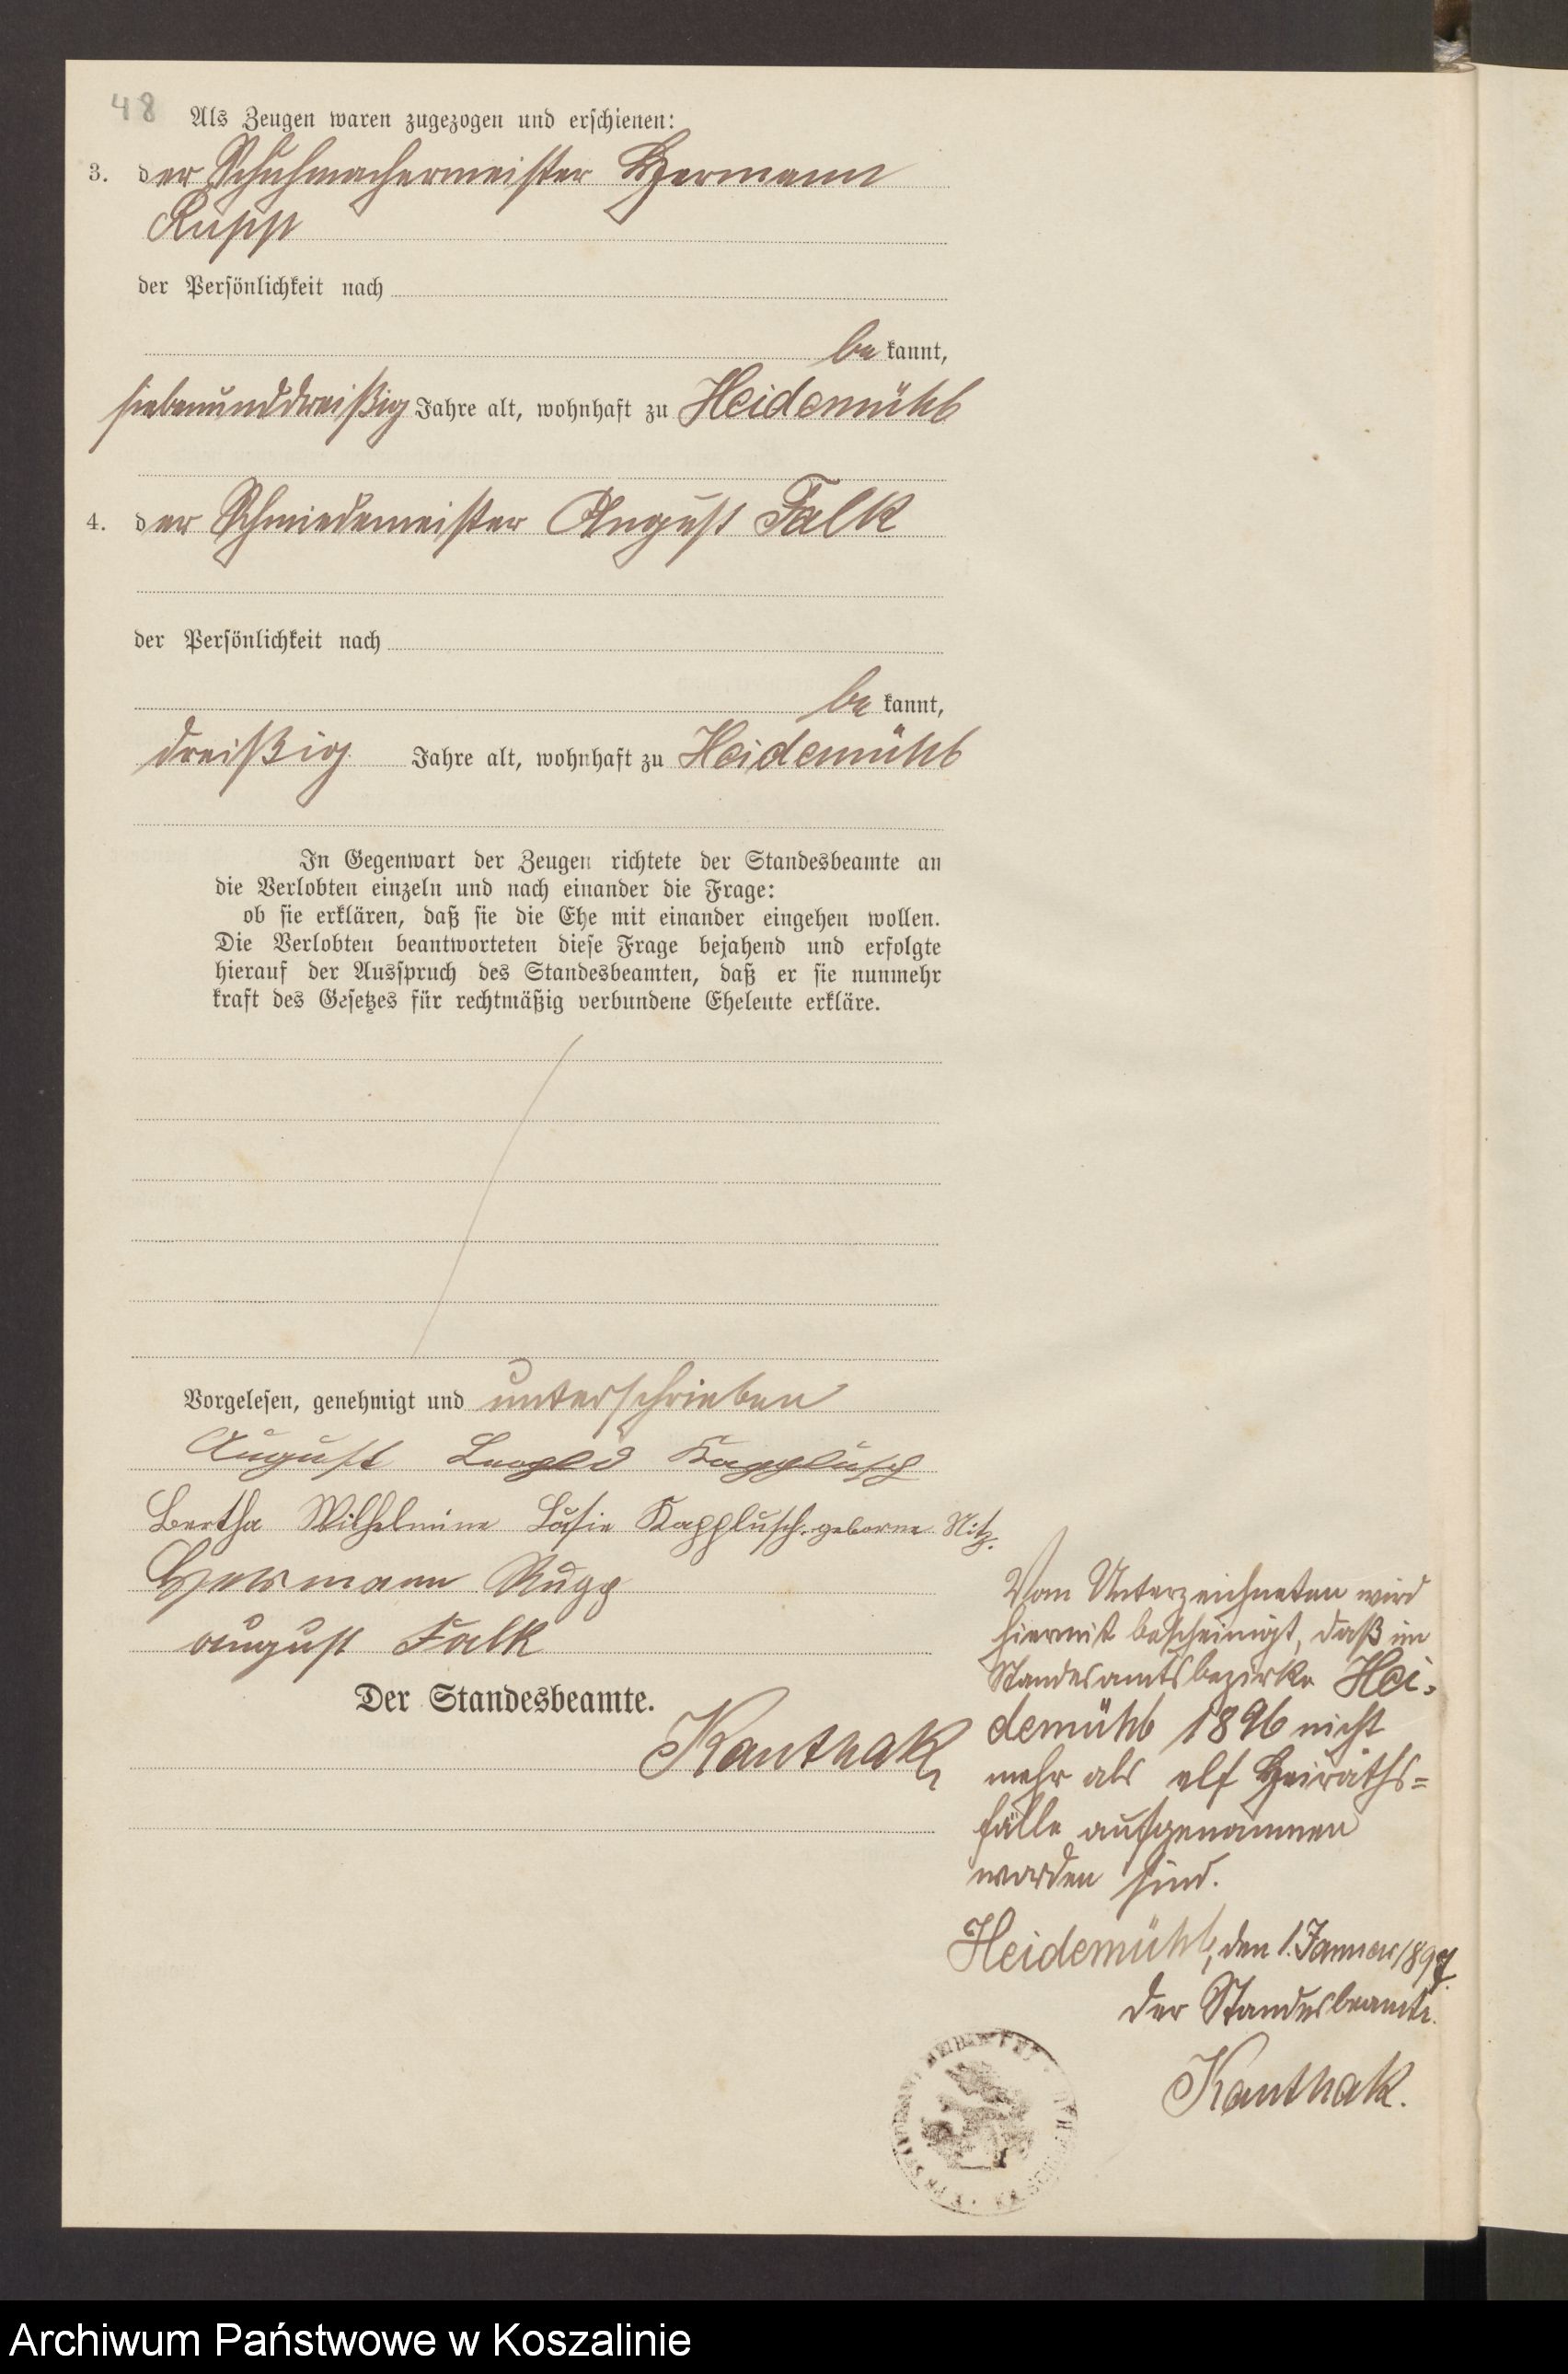 48
Als Zeugen waren zugezogen und erschienen:
3. der Schuhmachermeister Hermann
Rupp
der Persönlichkeit nach
be kannt,
siebenunddreißig Jahre alt, wohnhaft zu Heidemühl
4. der Schmiedemeister August Falk
der Persönlichkeit nach
be kannt,
dreißig Jahre alt, wohnhaft zu Heidemühl
In Gegenwart der Zeugen richtete der Standesbeamte an
die Verlobten einzeln und nach einander die Frage:
ob sie erklären, daß sie die Ehe mit einander eingehen wollen.
Die Verlobten beantworteten diese Frage bejahend und erfolgte
hierauf der Ausspruch des Standesbeamten, daß er sie nunmehr
kraft des Gesetzes für rechtmäßig verbundene Eheleute erkläre.
Vorgelesen, genehmigt und unterschrieben
August Leopold Kapplusch
Bertha Wilhelmine Luise Kapplusch geborne Nitz.
Hermann Rupp
August Falk
Der Standesbeamte.
Kanthak
Vom Unterzeichneten wird
hiermit bescheinigt, daß im
Standesamtsbezirke Hei-
demühl 1896 nicht
mehr als elf Heiraths=
fälle aufgenommen
worden sind.
Heidemühl, den 1. Januar 1897.
Der Standesbeamte.
Kanthak.
Archiwum Państwowe w Koszalinie